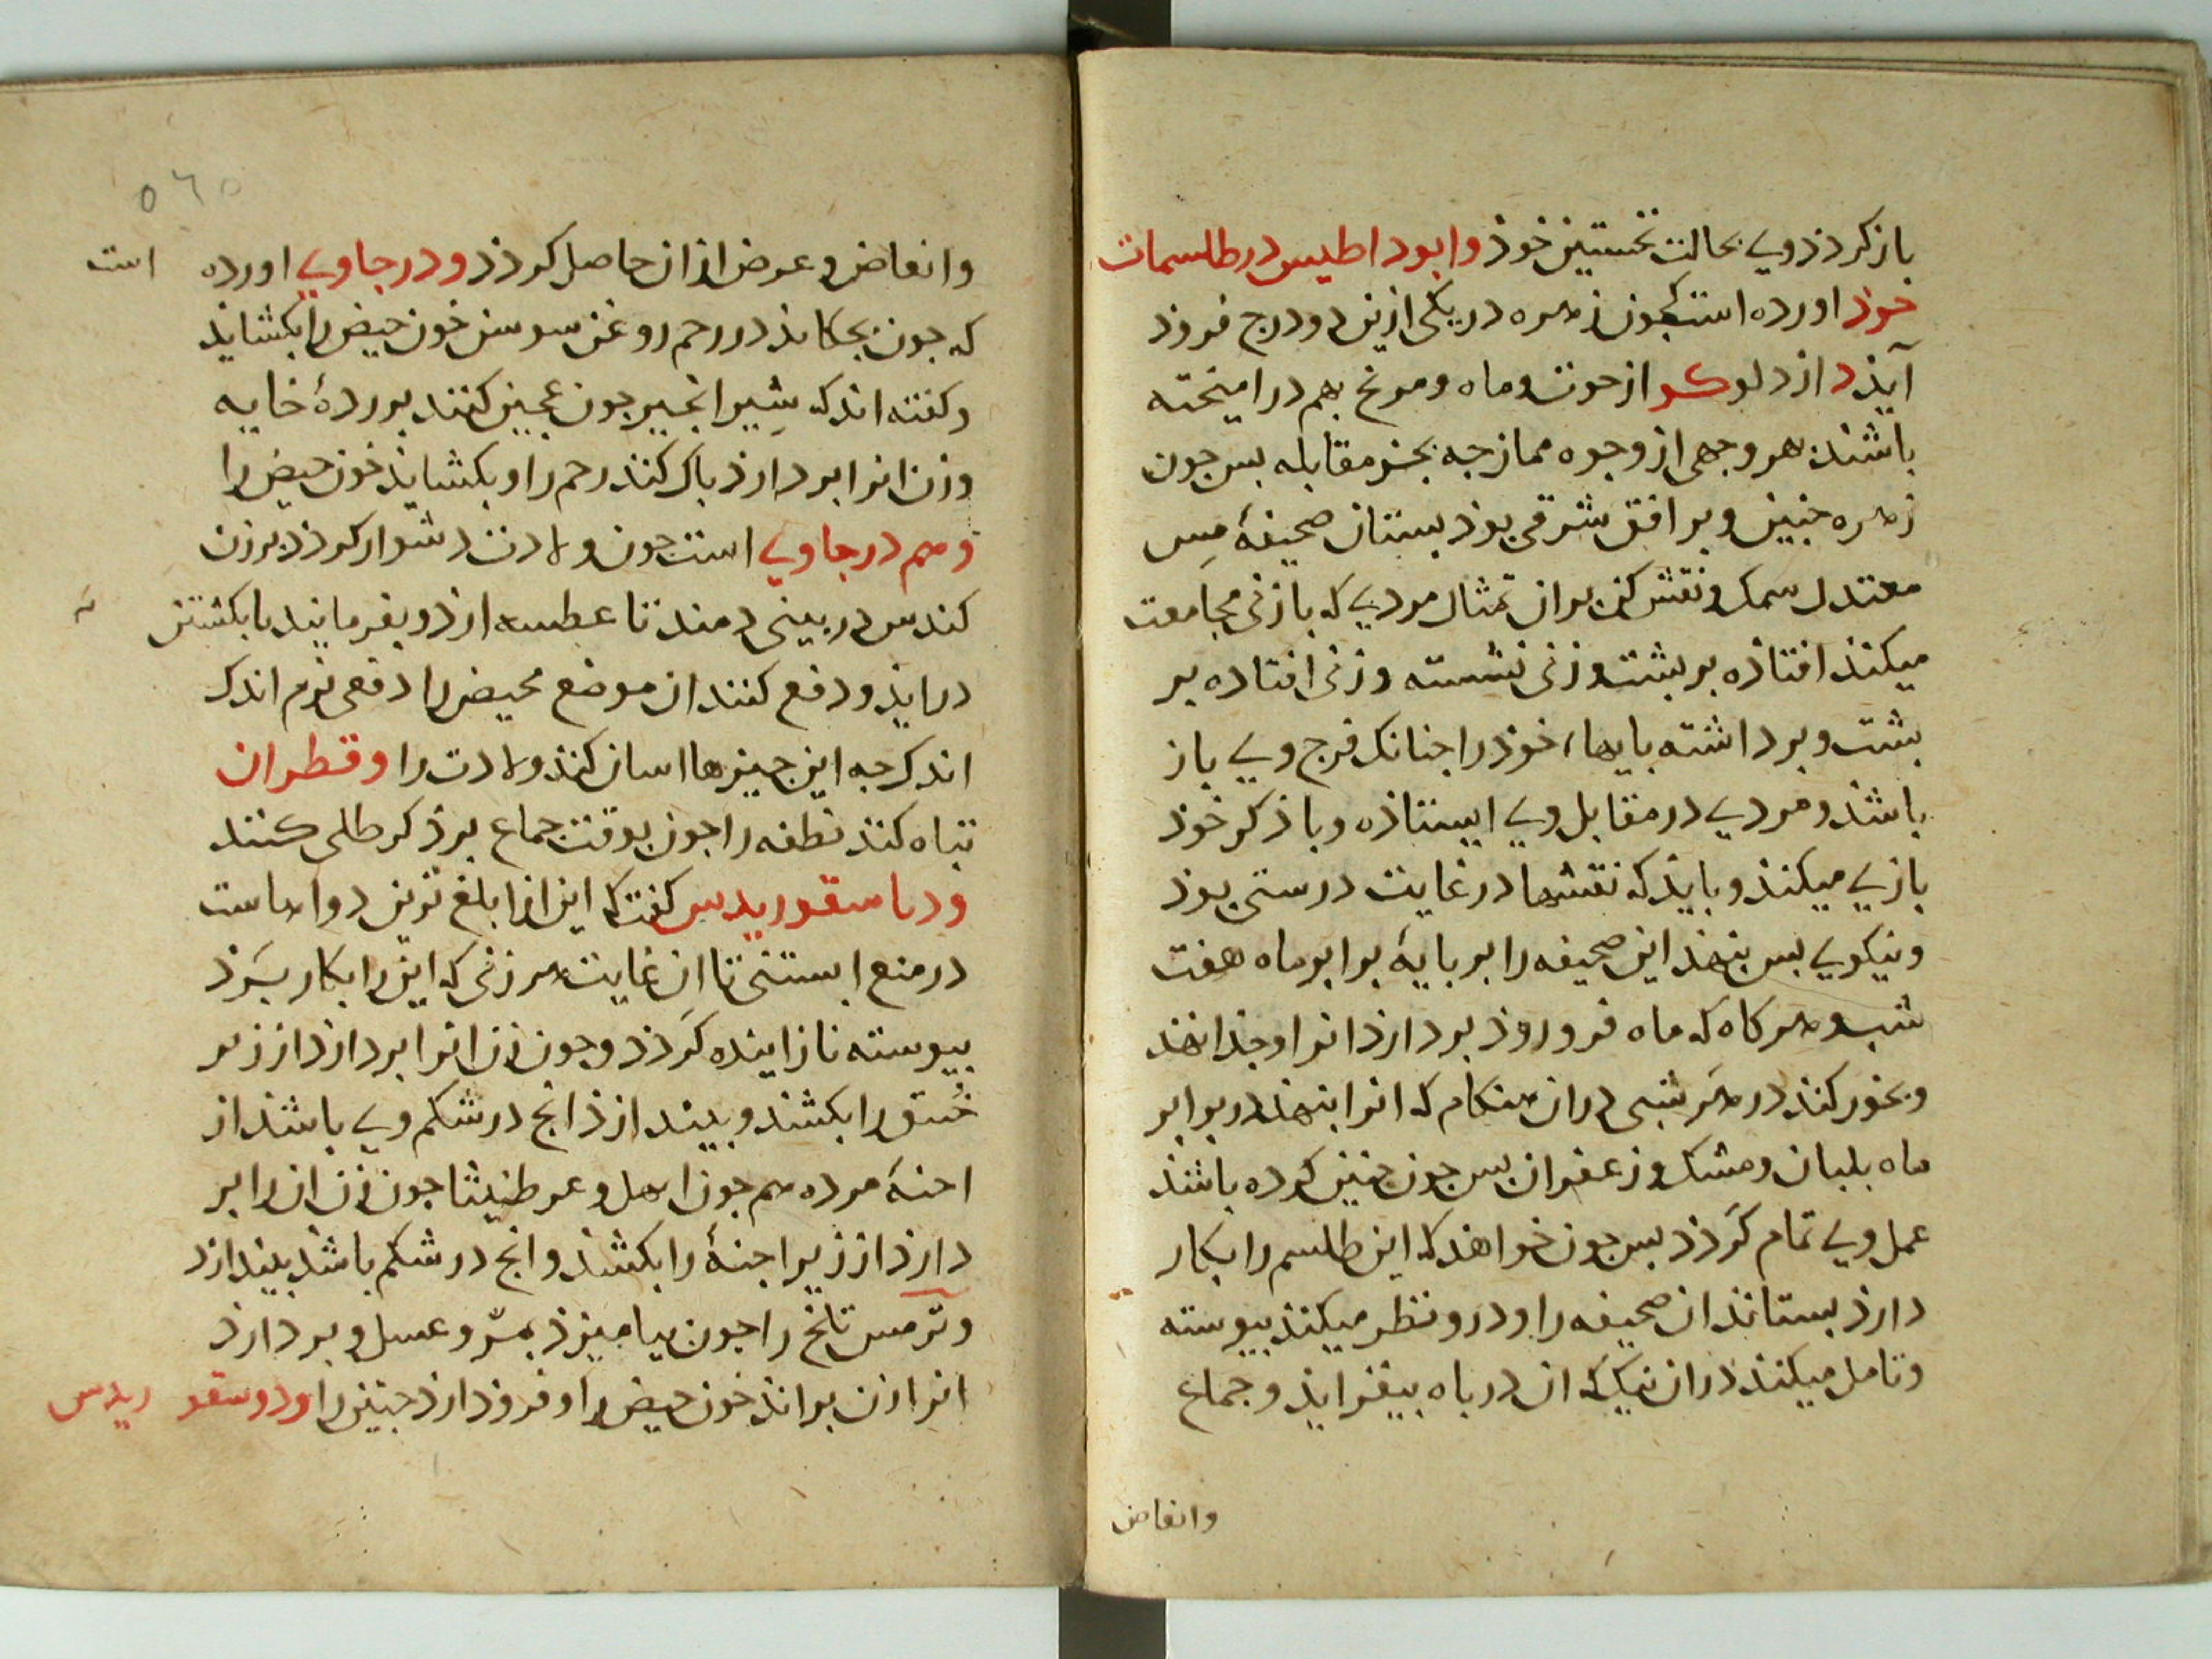 باز کردذ وی بحالت نخستین خوذ وابوداطیس در طلسمات
خوذ اورده است کجون زهره در یکی ازین دو درج فروذ
آیذ د از دلو کو از حوت و ماه و مریخ بهم درامیخته
باشند بهر وجهی از وجوه ممازجه بجز مقابله بس جون
زهره جنین و بر افق شرقی بوذ بستان صحیفهٔ مِس
معتدل سمک و نقش کن بران تمثال مردی که با زنی مجامعت
میکند افتاذه بر بشت و زنی نشسته و زنی افتاده بر
بشت و برداشته بایهاء خوذ را جنانک فرج وی باز
باشذ و مردی در مقابل وی ایستاذه و با ذکر خوذ
بازی میکند و بایذ که نقشها در غایت درستی بوذ
و نیکویی بس بنهذ این صحیفه را بر بایهٔ برابر ماه هفت
شب و هرکاه که ماه فرو روذ بردارذ انرا وجذا نهذ
و بخور کند در هر شبی دران هنکام که انرا بنهذ در برابر
ماه بلبان و مشک و زعفران بس جون جنین کرده باشذ
عمل وی تمام کردذ بس جون خواهذ که این طلسم را بکار
دارذ بستانذ ان صحیفه را و درو نظر میکند بیوسته
و تامل میکند دران نیک که ان در باه بیفزایذ و جماع
وانعاض
٥٦٥
وانعاض و عرض از ان حاصل کردذ و در جاوی اورده است
که جون بجکانذ در رحم روغن سوسن خون حیض را بکشایذ
و کفته اند که شِیر انجیر جون عجین کنند بزردهٔ خایه
و زن انرا بردارذ باک کنذ رحم را و بکشایذ خون حیض را
و هم در جاوی است جون ولادت دشوار کردذ بر زن
کندس در بینی دمند تا عطسه ارد و بفرمایند تا بکشتن
درایذ و دفع کنند ان موضع محیض را دفعی نرم اندک
اندک جه این جیزها اسان کنذ ولادت را وقطران
تباه کنذ نطفه را جون بوقت جماع بر ذکر طلی کنند
ودیاسقوریدس کفت که این از ابلغ ترین دواهاست
در منع ابستنی تا ان غایت هر زنی که این را بکار بَرَذ
بیوسته نازاینده کَردذ و جون زن انرا بردارذ از زیر
خُسق را بکشذ و بیندازذ انج در شکم وی باشذ از
اجنهٔ مرده هم جون ابهل و عرطنیثا جون زن ان را بر
دارذ از زیر اجنهٔ را بکشذ و انج در شکم باشذ بیندازد
وتَرمس تلخ را جون بیامیزذ بمرّ و عسل و بردارذ
انرا زن برانذ خون حیض را و فروذ ارذ جنین را ودوسقوریدس